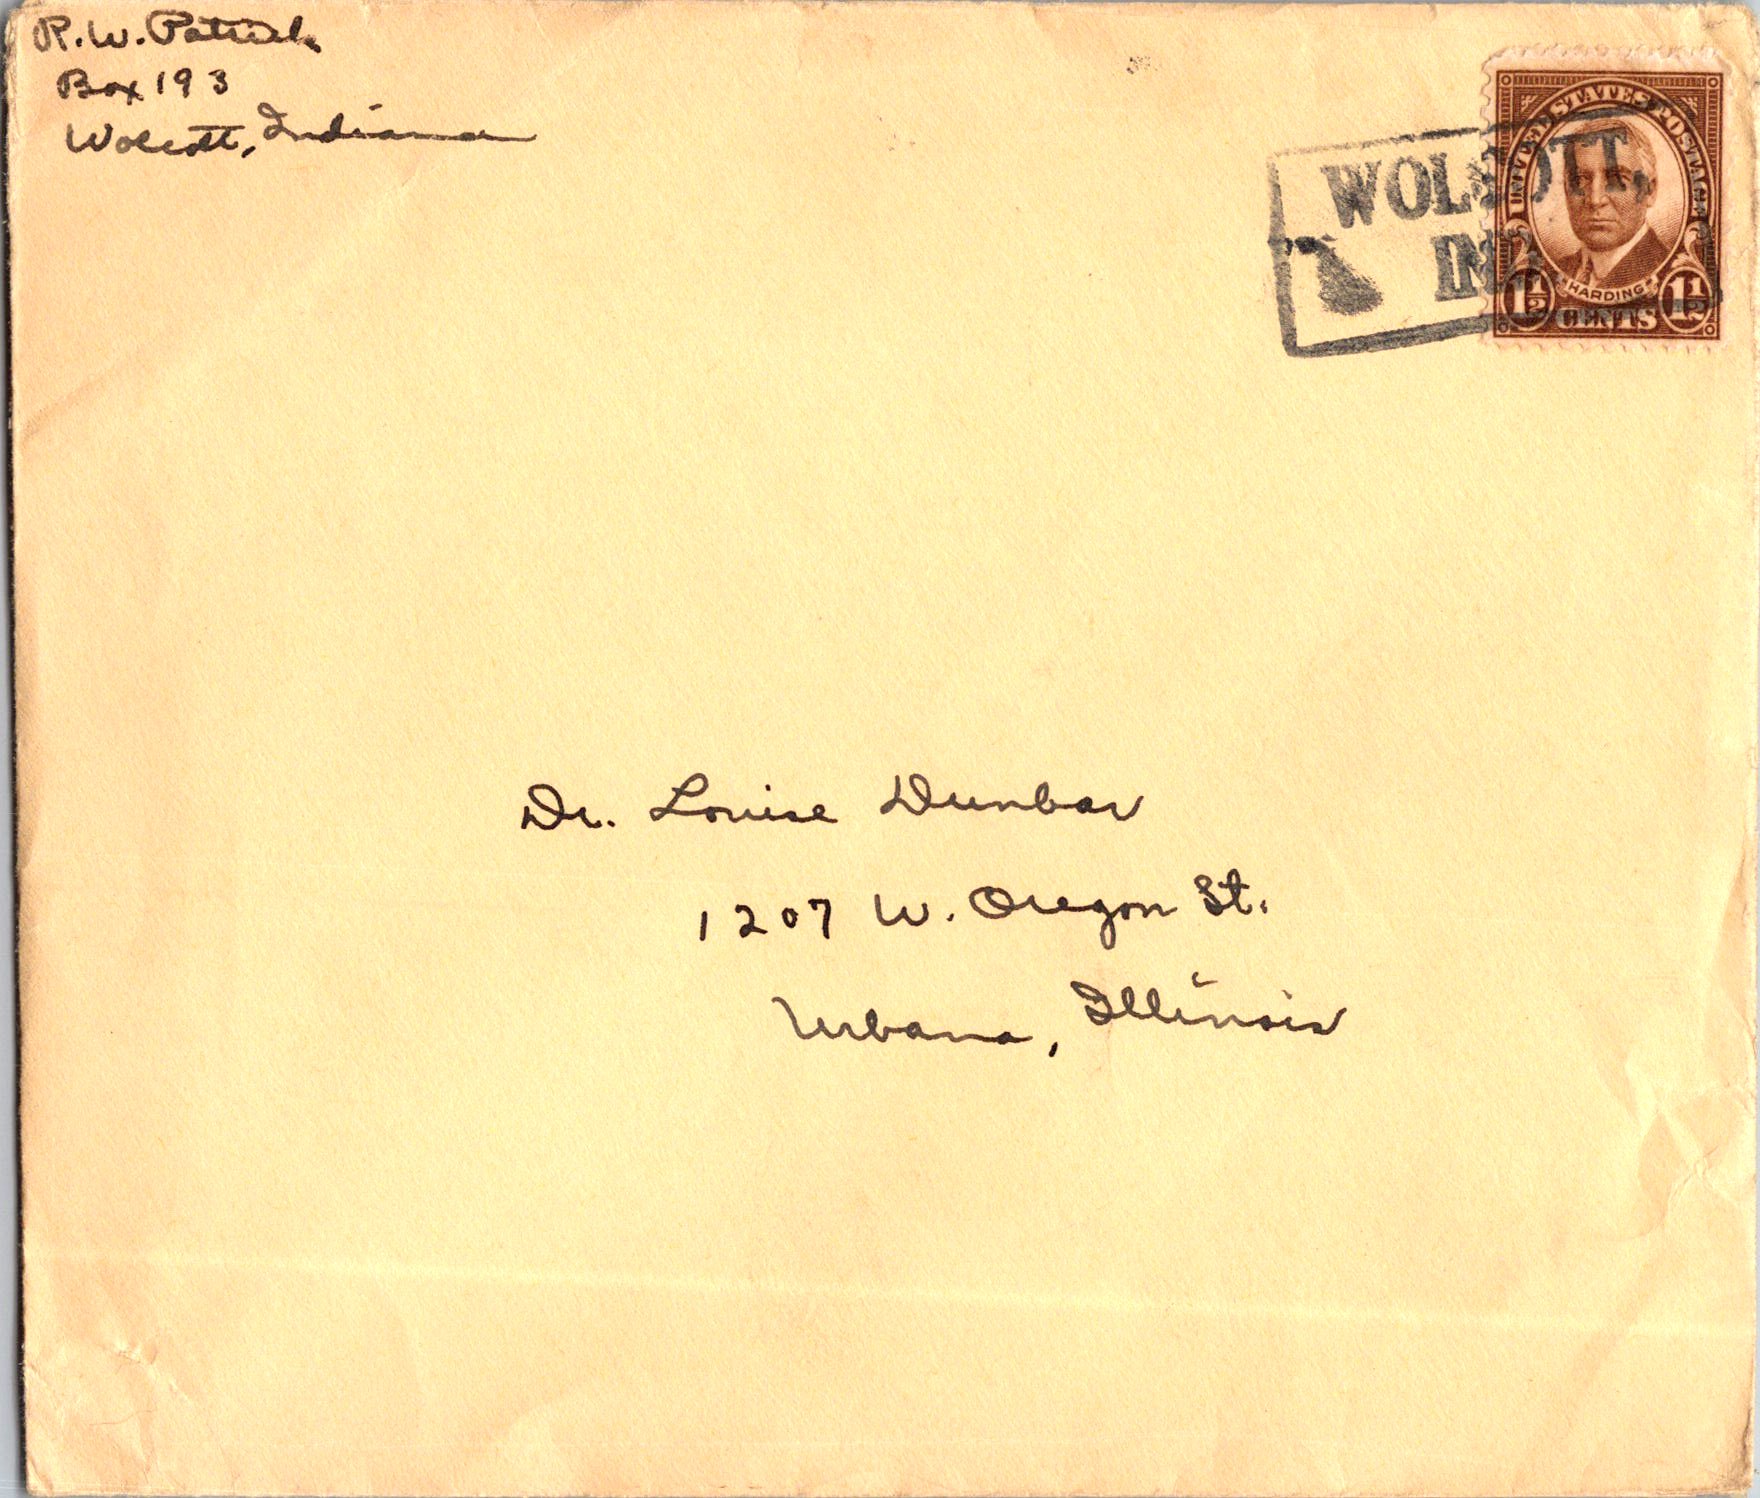 R.W. Patrick
Box 193
Wolcott, Indiana
WOLCOTT,
IND.
UNITED STATES POSTAGE
HARDING
1½ CENTS 1½
Dr. Louise Dunbar
1207 W. Oregon St.
Urbana, Illinois